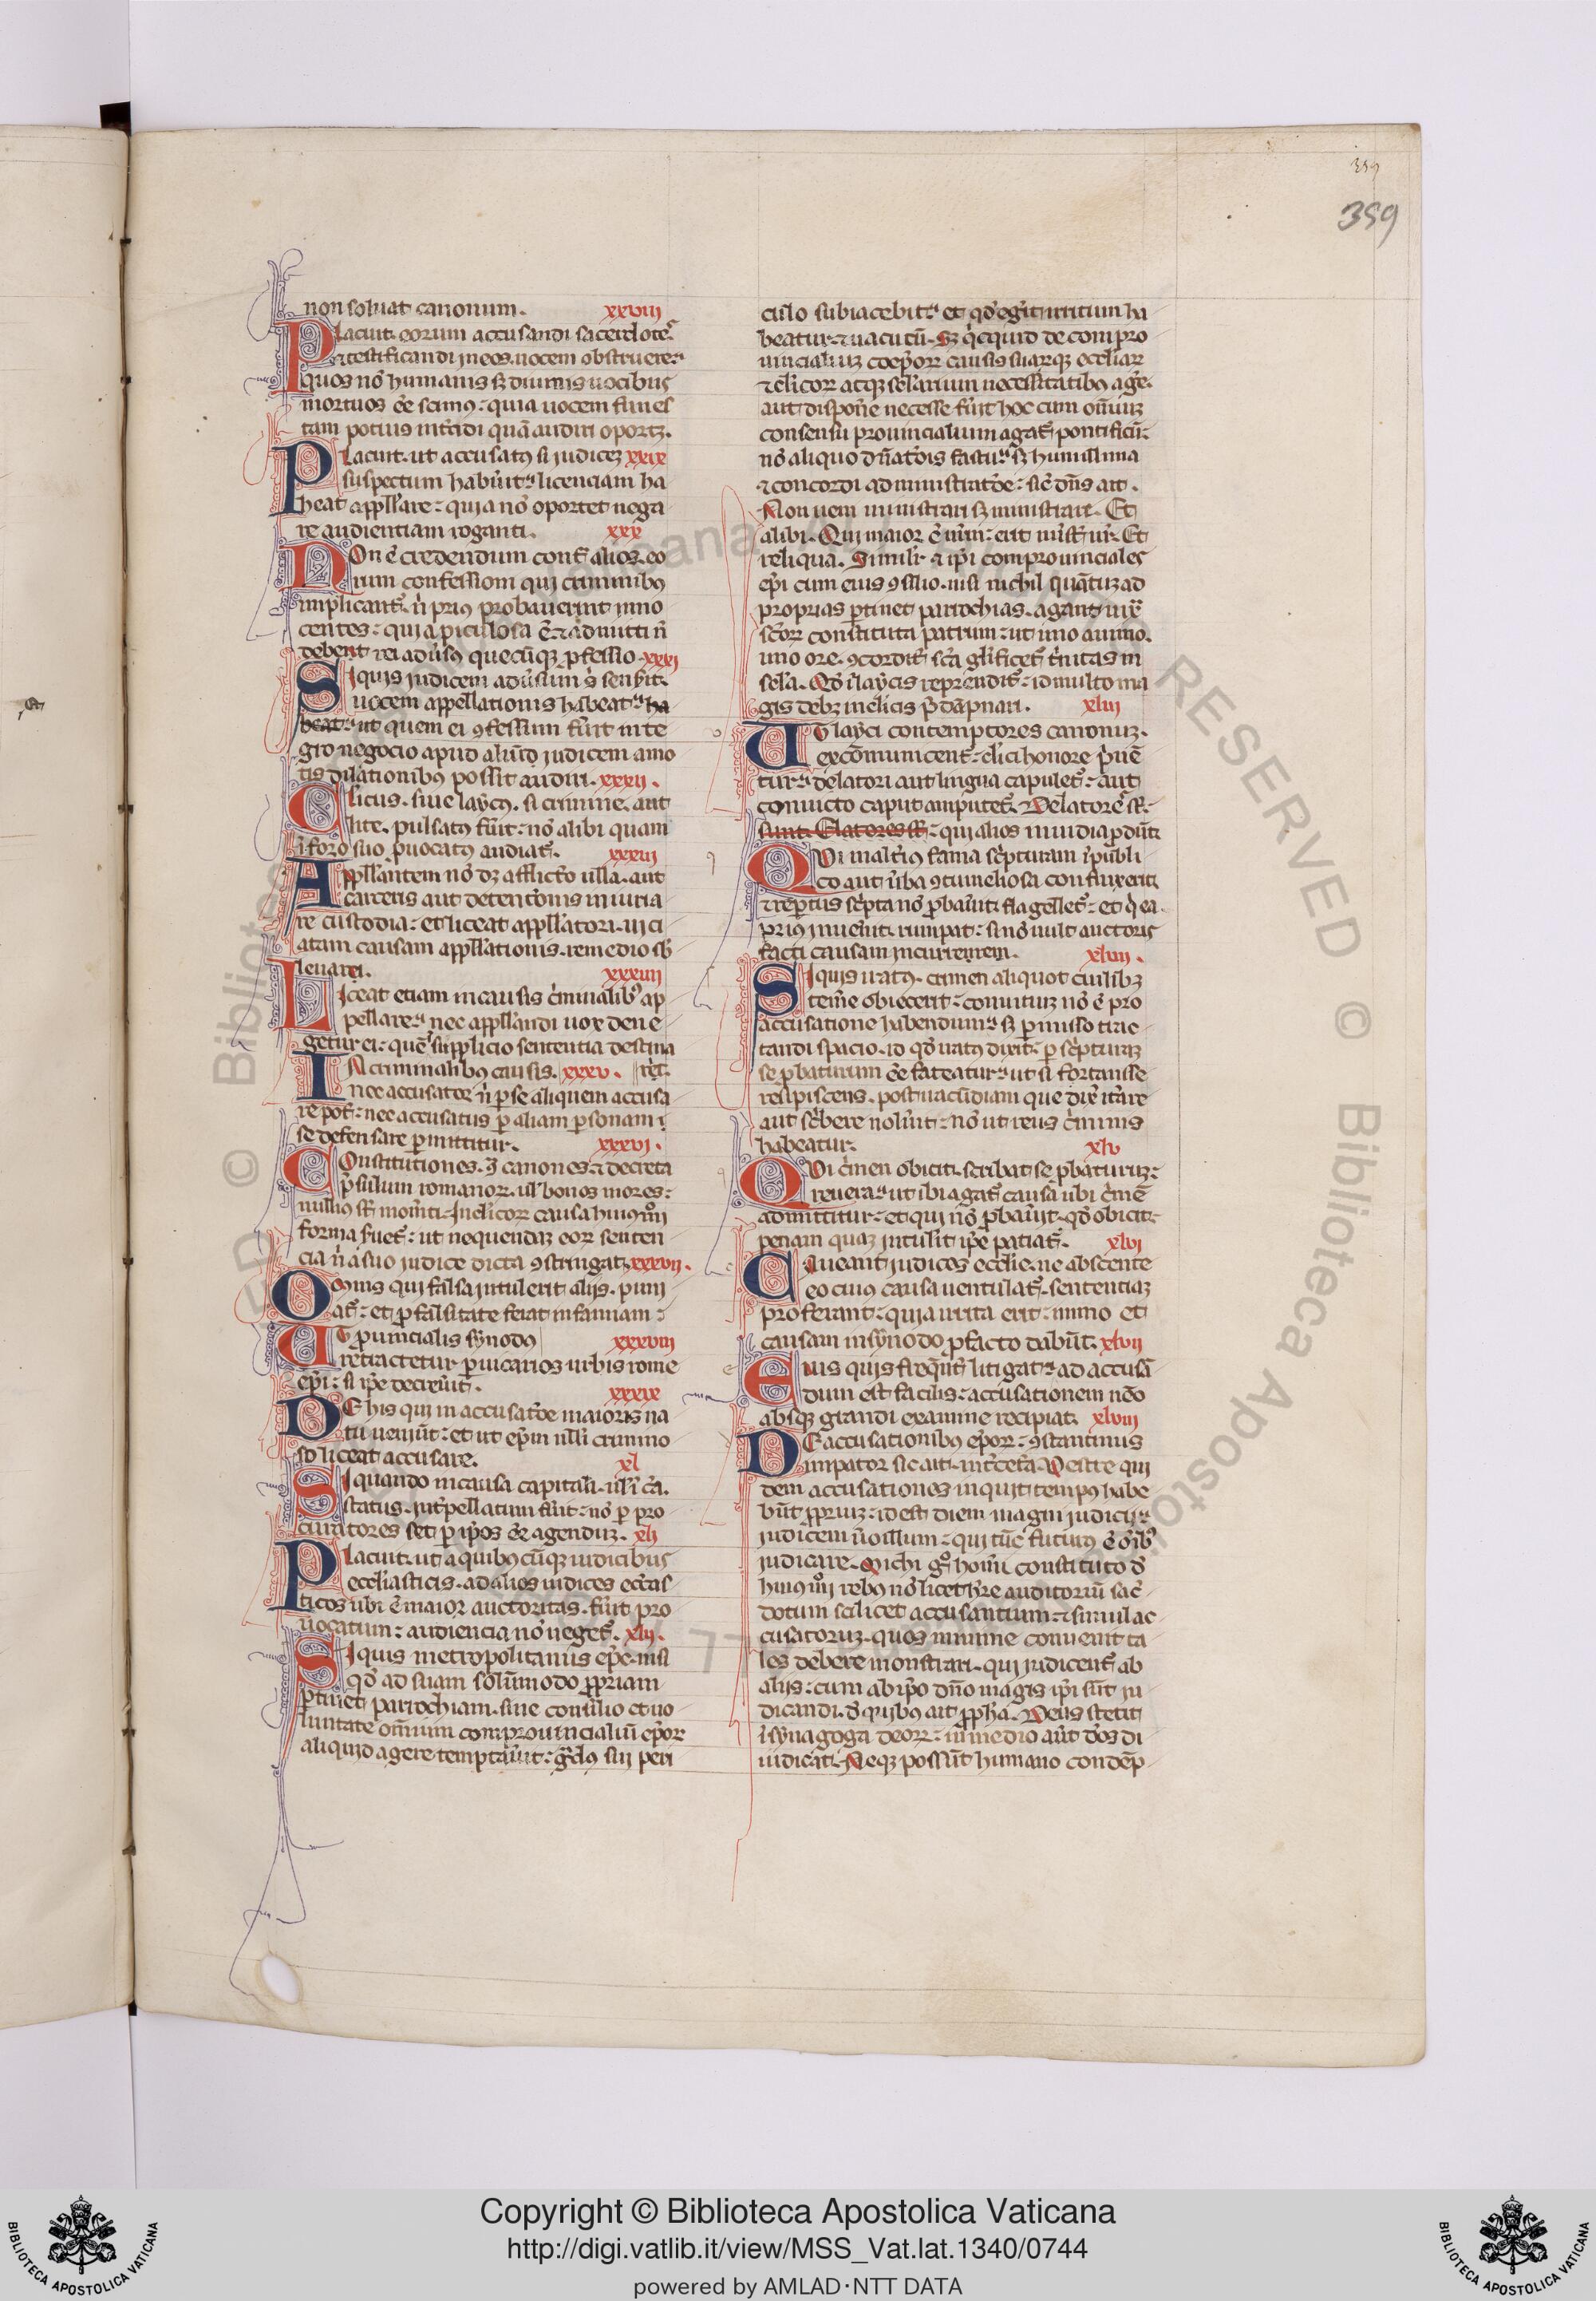 359
359
non soluat canonum. xxviii
Placuit eorum accusandi sacerdotes
& testificandi in eos uocem obstruere
quos nō humanis sꝫ diuinis uocibus
mortuos ēē scimꝰ: quia uocem funes
tam potius int̄cidi quā audiri oportꝫ.
Placuit ut accusatꝰ si iudicē xxix
suspectum habūit licenciam ha
beat app̄llare: quia nō oportet nega
re audientiam roganti. xxx
Non ē credendum cont̄ alios eo
rum confessioni qui criminibꝰ
implicant̄. n̄ prius probauerint inno
centes: quia piculosa ē & admitti n̄
debent rei adūsꝰ quēcūqꝫ p̄fessio. xxxi
Siquis iudicem adūsum s̄ senserit
uocem appellationis habeat ha
beat ut quem ei ꝯfessum fūit inte
gro negocio apud aliud iudicem amo
tis dilationibꝰ possit audiri. xxxii.
Cl̄icus. siue laycꝰ. si crimine. aut
lite. pulsatꝰ fūit: nō alibi quam
ī foro suo p̄uocatꝰ audiat̄. xxxiii
App̄llantem nō dꝫ afflict̄o ulla. aut
carceris aut detent̄onis iniuria
re custodia: et liceat app̄llatori uici
atam causam app̄llationis remedio sb̄
leuare. xxxiiii
Liceat etiam in causis c̄minalibꝰ ap
pellare nec app̄llandi uox dene
getur ei: quē supplicio sententia destina
In criminalibꝰ causis. xxxv. rit.
nec accusator n̄ p se aliquem accusa
re pot̄: nec accusatus p aliam p̄sonam ī
se defensare p̄mittitur. xxxvi.
Constitutiones. ꝯ canones & decreta
p̄sulum romanoꝝ. ul̄ bonos mores:
nullius st̄ mom̄ti. In cl̄icoꝝ causa huiꝰmōi
forma seruet̄: ut nequendaꝫ eoꝝ senten
cia n̄ a suo iudice dicta ꝯstringat. xxxvii.
Omnis qui falsa intulerit alijs. puni
at̄: et p falsitate ferat infamiam:
Ut p̄uincialis synodꝰ xxxviii
retractetur p uicarios urbis rome
ep̄i: si ip̄e decreūit. xxxix
De his qui in accusat̄oe maioris na
tu ueniūt: et ut ep̄m nulli crimino
so liceat accusare. xl
Si quando in causa capitali. ul̄ ī c̄a.
status. int̄pellatum fūit: nō p pro
curatores set p ip̄os ēē agenduꝫ. xli
Placuit ut a quibꝰcūqꝫ iudicibus
ecclīasticis. ad alios iudices ecc̄as
ticos ubi ē maior auctoritas. fūit pro
uocatum: audiencia nō neget̄. xlii.
Siquis metropolitanus ep̄c nisi
qd̄ ad suam solūmodo pp̄riam
p̄tinet parrochiam. sine consilio et uo
luntate om̄nium comprouincialiū ep̄oꝝ
aliquid agere temptāuit: gd̄us sui peri
culo subiacebit et qd̄ eḡit irritum ha
beatur & uacuū. Sꝫ q̄cquid de compro
uincialiuꝫ coep̄oꝝ causis suarqꝫ eccl̄iaꝝ
& cl̄icoꝝ atqꝫ scl̄arium necessitatibꝰ aḡe.
aut dispon̄e necesse fūit hoc cum om̄niuꝫ
consensu prouincialium agat̄ pontificū:
nō aliquo dn̄at̄ois fastu sꝫ humillima
& concordi administrat̄oe: sic̄ dn̄s ait.
Non ueni ministrari sꝫ ministrare. Et
alibi. Qui maior ē ur̄m: erit mi͂st̄ ur̄. Et
reliqua. Simil̄r & ip̄i comprouinciales
ep̄i cum eius ꝯsilio. nisi nichil quātuꝫ ad
proprias p̄tinet parrochias. agant iux̄
sc̄oꝝ constituta patrum: ut uno animo.
uno ore. ꝯcordit̄ sc̄a gl̄ificet̄ t̄nitas in
scl̄a. Qd̄ ī laycis reprendit̄: id multo ma
gis debꝫ in cl̄icis p̄dāpnari. xliii
Ut layci contemptores canonuꝫ.
excōmunicent̄: cl̄ici honore p̄uē
tur delatori aut lingua capulet̄: aut
conuicto caput amputet̄. Delatores st̄:
sunt. Elatores st̄: qui alios inuidia p̄dūt
Qui malt̄ius fama sc̄ipturam ī publi
co aut ūba ꝯtumeliosa confinxerit
& rep̄tus sc̄ipta nō p̄bāuit flagellet̄: et q̄ ea
prius inuen̄it. rumpat: si nō uult auctoris
facti causam incurrerem. xliiii.
Siquis iratꝰ. crimen aliquot cuilibꝫ
tem̄e obiecerit: conuituꝫ nō ē pro
accusatione habendum sꝫ p̄misso trac
tandi spacio. id qd̄ iratꝰ dixit. p sc̄ipturaꝫ
se p̄baturum ēē fateatur ut si fortassse
resipiscens. post iracūdiam que dix̄ it̄are
aut sc̄ibere nolūit: nō ut reus c̄iminis
habeatur. xlv
Qui c̄imen obicit. scribat se p̄baturuꝫ:
reuera ut ibi agat̄ causā ubi c̄imē
admittitur: et qui nō p̄bāuit. qd̄ obicit:
penam quaꝫ intulit ip̄e patiat̄. xlvi
Caueant iudices ecclīe. ne absente
eo cuiꝰ causa uentulat̄. sententiaꝫ
proferant: quia irrita erit: immo et
causam in synodo p̄facto dabūt. xlvii
Eius quis freq̄nt̄ litigat & ad accusā
dum est facilis: accusationem nēo
absqꝫ grandi examine recipiat. xlviii
De accusationibꝰ ep̄oꝝ: ꝯstantinus
impator sic ait. int̄ cet̄a. Uestre qui
dem accusationes inquit tempꝰ habe
būt pp̄riuꝫ: id est diem magni iudicij
iudicem u̅o illum: qui tūc futurꝰ ē ōib̄ꝰ
iudicare. Michi gͦ homi͂ constituto d̄
huiꝰmōi rebꝰ nō licet h̄re auditoriū sac̄
dotum scilicet accusantium & simul ac
cusatoruꝫ. quos minime conuenit ta
les debere monstrari. qui iudicent̄ ab
alijs: cum ab ip̄o dn̄o magis ip̄i sūt iu
dicandi. d̄ quibꝰ ait pp̄ha. Deus stetit
ī synagoga deoꝝ: in medio aūt d̄os di
iudicat. Neqꝫ possūt humano condēp
© Biblioteca Apostolica Vaticana ALL RIGHTS RESERVED
Copyright © Biblioteca Apostolica Vaticana
http://digi.vatlib.it/view/MSS_Vat.lat.1340/0744
powered by AMLAD·NTT DATA
BIBLIOTECA APOSTOLICA VATICANA
BIBLIOTECA APOSTOLICA VATICANA